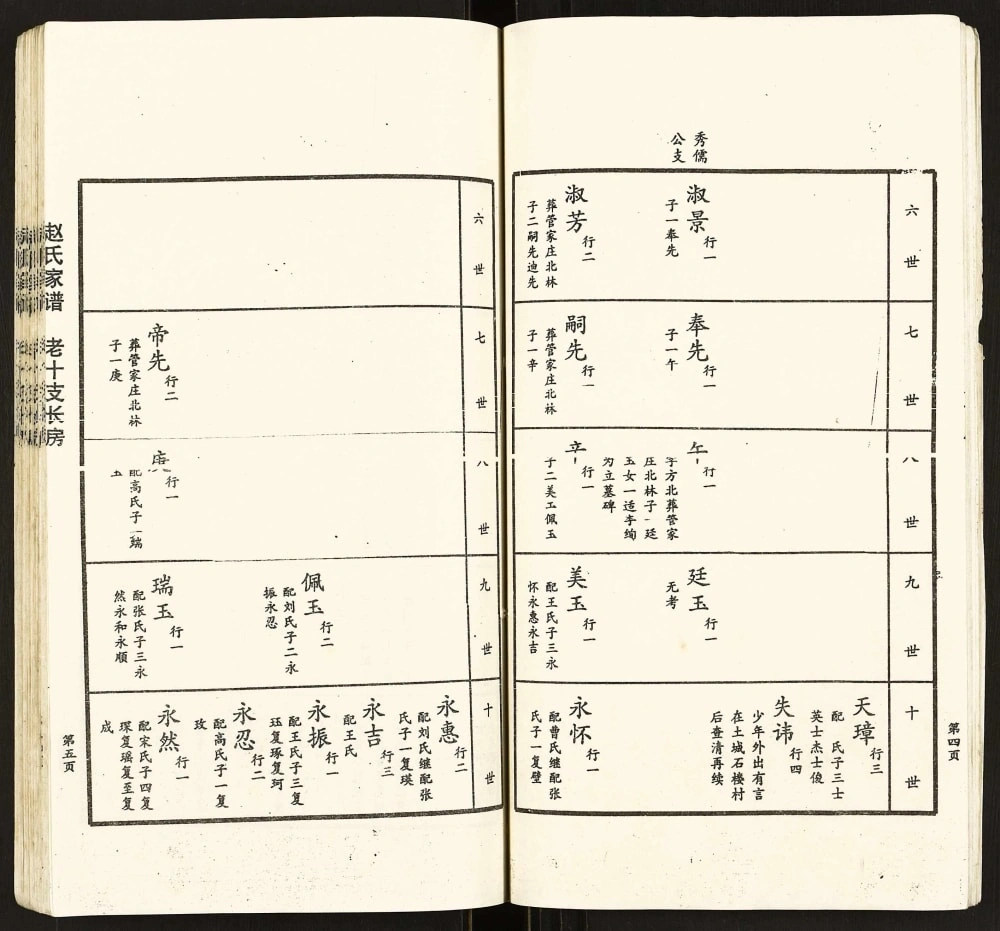 秀儒
公支
六世
淑景 行一
子一奉先
淑芳 行二
葬管家庄北林
子二嗣先迪先
七世
奉先 行一
子一午
嗣先 行一
葬管家庄北林
子一辛
八世
午 行一
字方北葬管家
庄北林子一廷
玉女一适李绚
为立墓碑
辛 行一
子二美玉佩玉
九世
廷玉 行一
无考
美玉 行一
配王氏子三永
怀永惠永吉
十世
天璋 行三
配 氏子三士
英士杰士俊
失讳 行四
少年外出有言
在土城石楼村
后查清再续
永怀 行一
配曹氏继配张
氏子一复璧
第四页
六世
七世
帝先 行二
葬管家庄北林
子一庚
八世
庚 行一
配高氏子一瑞
玉
九世
佩玉 行二
配刘氏子二永
振永忍
瑞玉 行一
配张氏子三永
然永和永顺
十世
永惠 行二
配刘氏继配张
氏子一复瑛
永吉 行三
配王氏
永振 行一
配王氏子三复
珏复琢复珂
永忍 行二
配高氏子一复
玫
永然 行一
配宋氏子四复
琛复瑶复至复
成
赵氏家谱 老十支长房
第五页